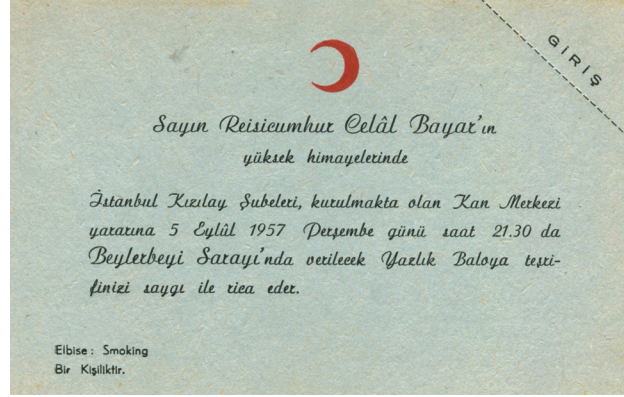 GİRİŞ
Sayın Reisicumhur Celâl Bayar'ın
yüksek himayelerinde
İstanbul Kızılay Şubeleri, kurulmakta olan Kan Merkezi
yararına 5 Eylûl 1957 Perşembe günü saat 21.30 da
Beylerbeyi Sarayı'nda verilecek Yazlık Baloya teşri-
finizi saygı ile rica eder.
Elbise : Smoking
Bir Kişiliktir.